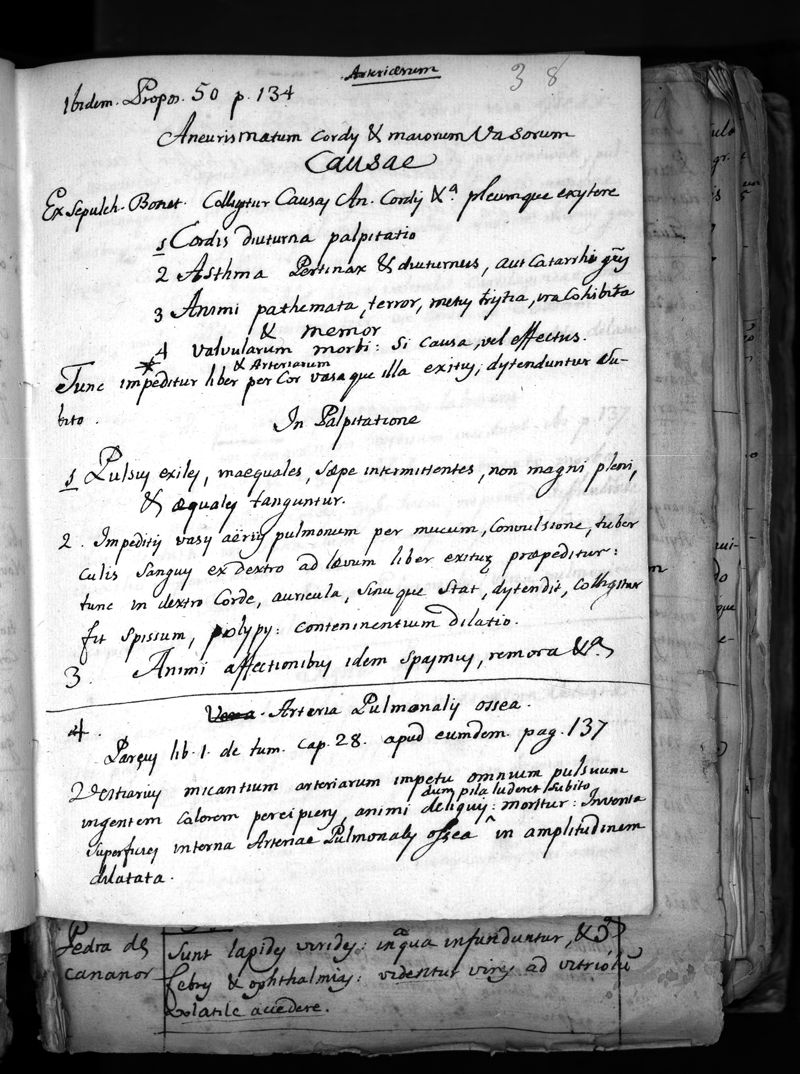 Arteriarum
38
Ibidem. Propos. 50 p. 134
Aneurismatum Cordy & maiorum Vasorum
Causae
Ex Sepulch. Bonet. Colligitur Causas An. Cordij &a plerumque existere
1 Cordis diuturna palpitatio
2 Asthma Pertinax & diuturnus, aut Catarrhus
3 Animi pathemata, terror, metus tristitia, ira Cohibita
& memor
4 Valvularum morbi: Si Causa, vel effectus.
& Arteriarum
Tunc impeditur liber per Cor vasaque illa exitus; distenduntur Su-
bito.
In Palpitatione
1 Pulsus exiles, inaequales, saepe intermittentes, non magni pleni,
& aequales tanguntur.
2. Impeditis vasis aëriis pulmonum per mucum, Convulsione, tuber
culis Sanguis ex dextro ad laevum liber exitus praepeditur:
tunc in dextro Corde, auricula, Sinuque Stat, distendit, Colligitur
fit Spissum, polypus: contenientium dilatio.
3. Animi affectionibus idem Spasmus, remora &a
4. Arteria Pulmonalis ossea.
Paręus lib. 1. de tum. Cap. 28. apud eumdem pag. 137
Vestiarius micantium arteriarum impetu omnium pulsuum
dum pila luderet Subito
ingentem Calorem percipiens, animi deliquis: moritur: Inventa
Superficies interna Arteriae Pulmonalis ossea in amplitudinem
dilatata.
Pedra de
Cananor
Sunt lapides virides: in aqua infunduntur, &
febris & ophthalmias: videntur vires ad vitriolum
volatile accedere.